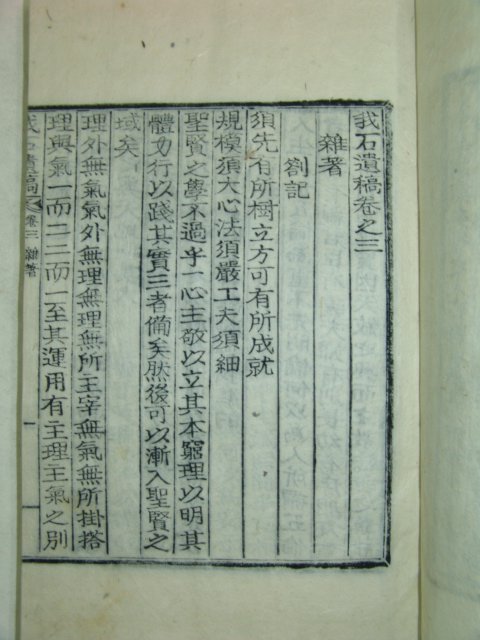 我石遺稿卷之三
雜著
劄記
須先有所樹立方可有所成就
規模須大心法須嚴工夫須細
聖賢之學不過乎一心主敬以立其本窮理以明其
體力行以踐其實三者備矣然後可以漸入聖賢之
域矣
理外無氣氣外無理無理無所主宰無氣無所掛搭
理與氣一而二二而一至其運用有主理主氣之別
我石遺稿 卷三 雜著 一